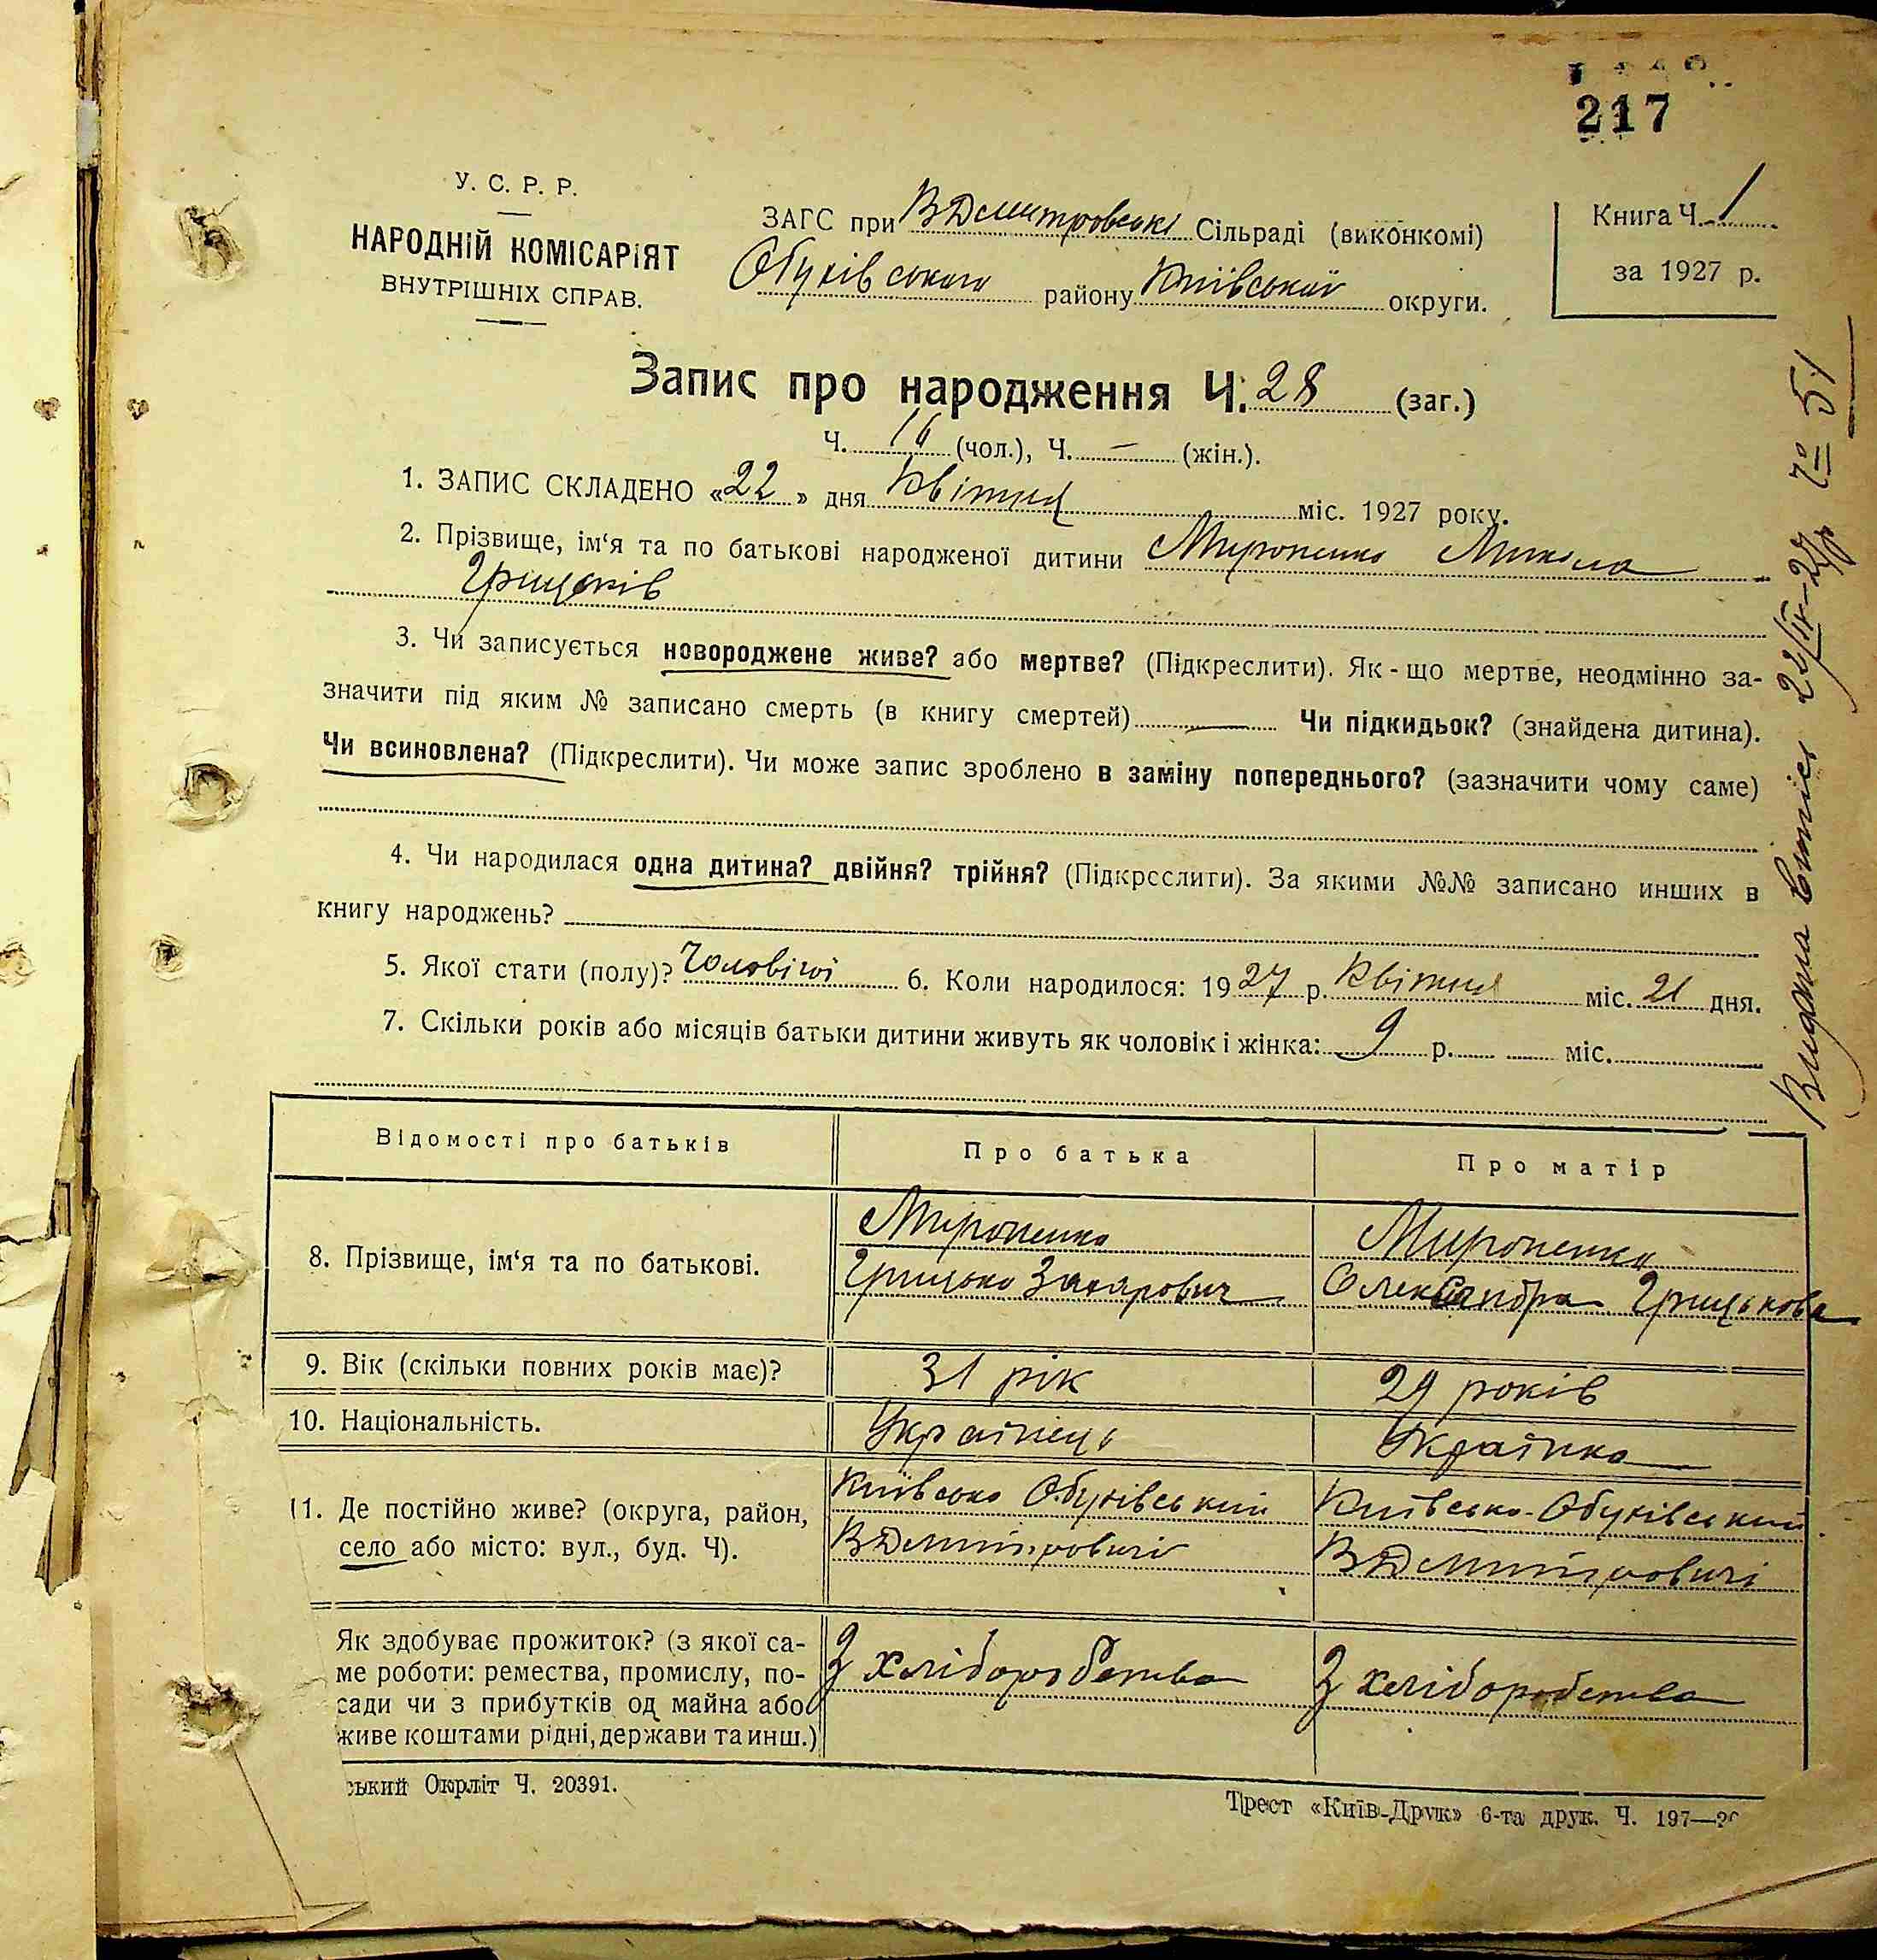 217
У. С. Р. Р.
НАРОДНІЙ КОМІСАРІЯТ
ВНУТРІШНІХ СПРАВ.
ЗАГС при ВДмитровські Сільраді (виконкомі)
Обухівського району Київської округи.
Книга Ч. 1
за 1927 р.
Запис про народження Ч. 28 (заг.)
Ч. 16 (чол.), Ч. — (жін.).
1. ЗАПИС СКЛАДЕНО «22» дня Квітня міс. 1927 року.
2. Прізвище, ім‘я та по батькові народженої дитини Мироненко Микола
Грицьків
3. Чи записується новороджене живе? або мертве? (Підкреслити). Як-що мертве, неодмінно за-
значити під яким № записано смерть (в книгу смертей) — Чи підкидьок? (знайдена дитина).
Чи всиновлена? (Підкреслити). Чи може запис зроблено в заміну попереднього? (зазначити чому саме)
4. Чи народилася одна дитина? двійня? трійня? (Підкреслити). За якими №№ записано инших в
книгу народжень?
5. Якої стати (полу)? Чоловічої 6. Коли народилося: 1927 р. Квітня міс. 21 дня.
7. Скільки років або місяців батьки дитини живуть як чоловік і жінка: 9 р. міс.
Відомості про батьків Про батька Про матір
8. Прізвище, ім‘я та по батькові.
Мироненко
Грицько Захарович
Мироненко
Олександра Грицькова
9. Вік (скільки повних років має)? 31 рік 29 років
10. Національність. Українець Українка
11. Де постійно живе? (округа, район,
село або місто: вул., буд. Ч).
Київсько Обухівський
ВДмитровичі
Київсько-Обухівський
ВДмитровичі
Як здобуває прожиток? (з якої са-
ме роботи: ремества, промислу, по-
сади чи з прибутків од майна або
живе коштами рідні, держави та инш.)
З хліборобства
З хліборобства
ський Окрліт Ч. 20391.
Трест «Київ-Друк» 6-та друк. Ч. 197—
Видана витпіс 22/IV-27р № 51